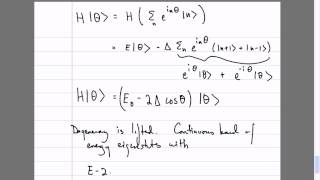 H|θ⟩ = H ( Σ_n e^{inθ} |n⟩ )
= E|θ⟩ - Δ Σ_n e^{inθ} (|n+1⟩ + |n-1⟩)
e^{iθ}|θ⟩ + e^{-iθ}|θ⟩
H|θ⟩ = (E_0 - 2Δ cosθ) |θ⟩
Degeneracy is lifted. Continuous band of
energy eigenstates with
E-2